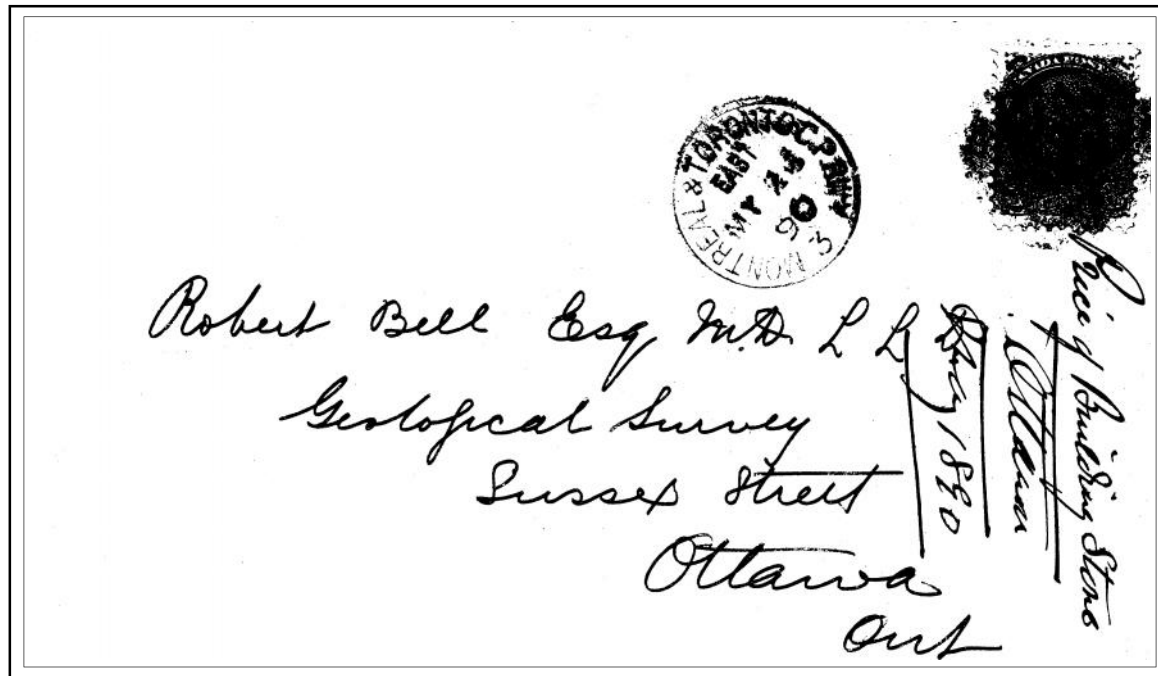 MONTREAL & TORONTO C.P.
EAST
MY
90
3
Robert Bell Esq M.D. L L
Geological Survey
Sussex Street
Ottawa
Ont
Price of Building Stone
Ottawa
May 1890